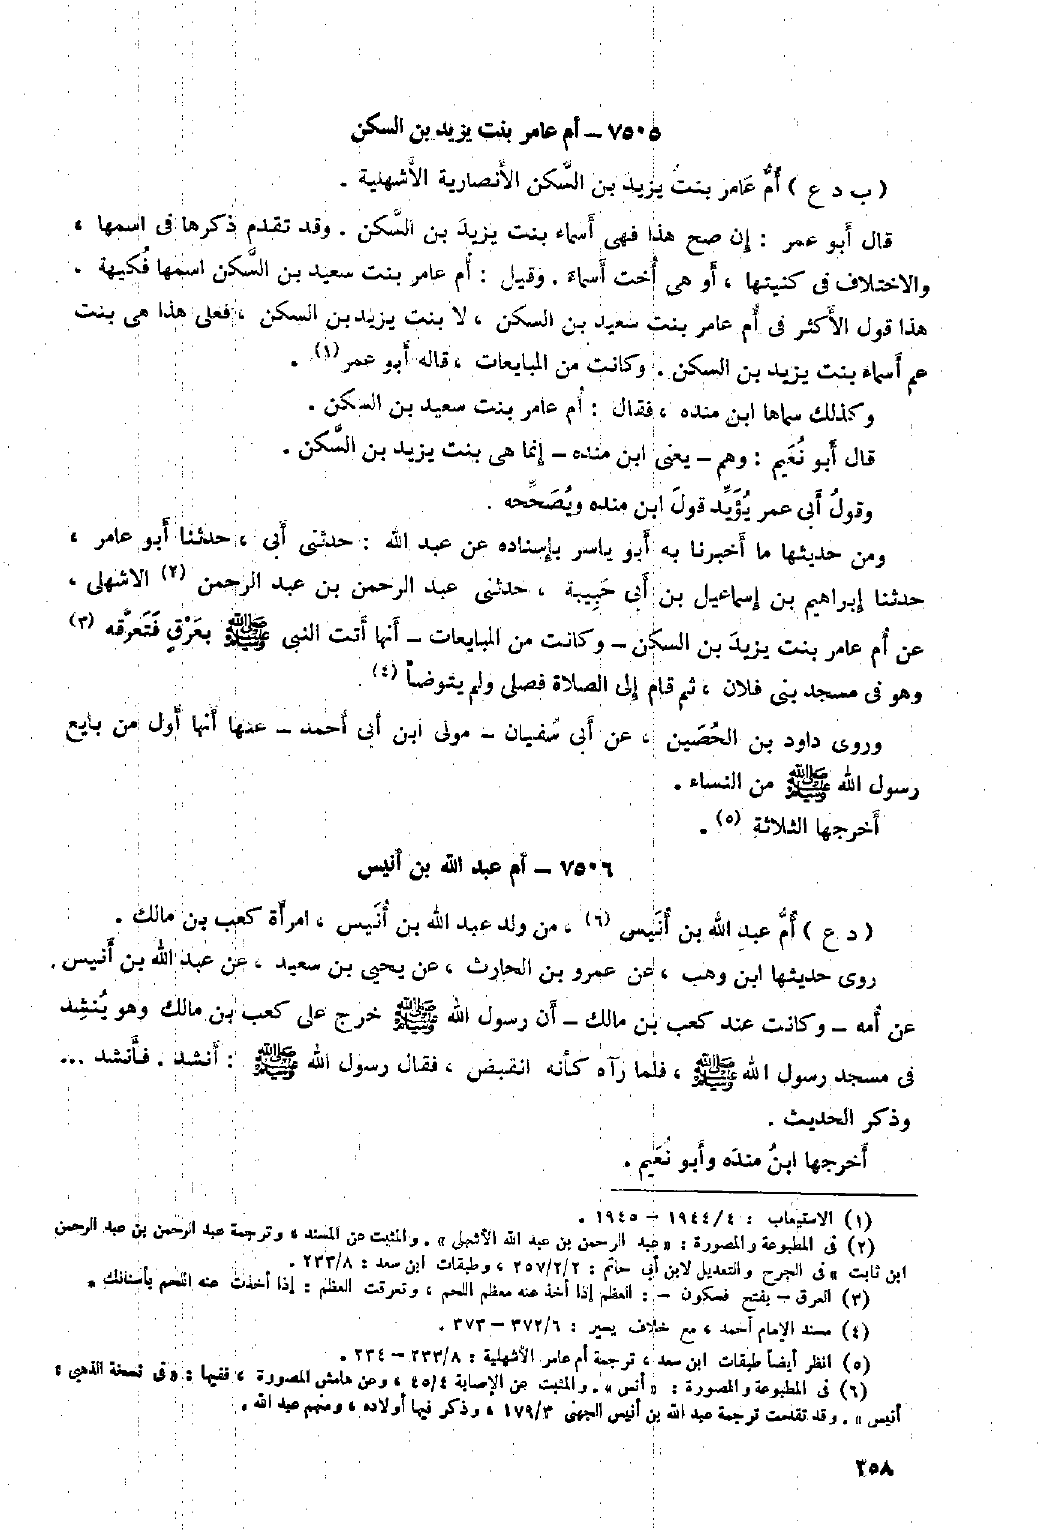 ٧٥٠٥ – أم عامر بنت يزيد بن السكن
( ب د ع ) أُمُّ عَامر بنتُ يزيد بن السَّكن الأَنصارية الأَشهلية .
قال أَبو عمر : إن صح هذا فهى أَسماء بنت يزيدَ بن السَّكن . وقد تقدم ذكرها فى اسمها ،
والاختلاف فى كنيتها ، أَو هى أُخت أَسماءَ . وقيل : أُم عامر بنت سعيد بن السَّكن اسمها فُكيهة .
هذا قول الأَكثر فى أُم عامر بنت سعيد بن السكن ، لا بنت يزيد بن السكن ، فعلى هذا هى بنت
عم أَسماء بنت يزيد بن السكن . وكانت من المبايعات ، قاله أَبو عمر (١) .
وكذلك سماها ابن منده ، فقال : أُم عامر بنت سعيد بن السكن .
قال أَبو نُعَيم : وهم – يعنى ابن منده – إنما هى بنت يزيد بن السَّكن .
وقولُ أَبى عمر يُؤَيِّد قولَ ابن منده ويُصَحِّحه .
ومن حديثها ما أَخبرنا به أَبو ياسر بإسناده عن عبد الله : حدثنى أَبى ، حدثنا أَبو عامر ،
حدثنا إبراهيم بن إسماعيل بن أَبى حَبِيبة ، حدثنى عبد الرحمن بن عبد الرحمن (٢) الاشهلى ،
عن أُم عامر بنت يزيدَ بن السكن – وكانت من المبايعات – أَنها أَتت النبى ﷺ بعَرْقٍ فَتَعرَّقه (٣)
وهو فى مسجد بنى فلان ، ثم قام إلى الصلاة فصلى ولم يتوضأ (٤) .
وروى داود بن الحُصَين ، عن أَبى سُفيان – مولى ابن أَبى أَحمد – عنها أَنها أَول من بايع
رسول الله ﷺ من النساء .
أَخرجها الثلاثة (٥) .
٧٥٠٦ – أم عبد الله بن أنيس
( د ع ) أُمُّ عبد الله بن أُنَيس (٦) ، من ولد عبد الله بن أُنَيس ، امرأَة كعب بن مالك .
روى حديثها ابن وهب ، عن عمرو بن الحارث ، عن يحيى بن سعيد ، عن عبد الله بن أَنيس .
عن أُمه – وكانت عند كعب بن مالك – أَن رسول الله ﷺ خرج على كعب بن مالك وهو يُنشِد
فى مسجد رسول الله ﷺ ، فلما رآه كأنه انقبض ، فقال رسول الله ﷺ : أَنشد . فأَنشد ...
وذكر الحديث .
أَخرجها ابنُ مندَه وأَبو نُعَيم .
(١) الاستيعاب : ١٩٤٤/٤ – ١٩٤٥ .
(٢) فى المطبوعة والمصورة : « عبد الرحمن بن عبد الله الأشجلى » . والمثبت عن المسند ، وترجمة عبد الرحمن بن عبد الرحمن
ابن ثابت » فى الجرح والتعديل لابن أبى حاتم : ٢٥٧/٢/٢ ، وطبقات ابن سعد : ٢٣٣/٨ .
(٣) العرق – بفتح فسكون – : العظم إذا أخذ عنه معظم اللحم ، وتعرقت العظم : إذا أخذت عنه اللحم بأسنانك .
(٤) مسند الإمام أحمد ، مع خلاف يسير : ٣٧٢/٦ – ٣٧٣ .
(٥) انظر أيضاً طبقات ابن سعد ، ترجمة أم عامر الأشهلية : ٢٣٣/٨ – ٢٣٤ .
(٦) فى المطبوعة والمصورة : « أنس » . والمثبت عن الإصابة ٤٥/٤ ، وعن هامش المصورة ، ففيها : « فى نسخة الذهبى :
أنيس » . وقد تقدمت ترجمة عبد الله بن أنيس الجهنى ١٧٩/٣ ، وذكر فيها أولاده ، ومنهم عبد الله .
٣٥٨